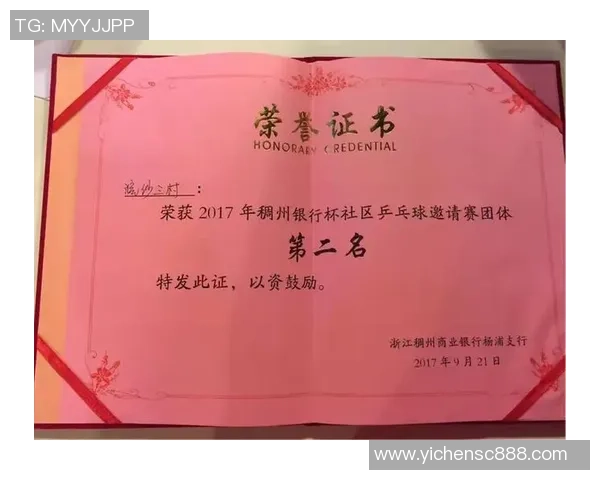 TG: MYYJJPP
荣誉证书
HONORARY CREDENTIAL
三村：
荣获2017年稠州银行杯社区乒乓球邀请赛团体
第二名
特发此证，以资鼓励。
浙江稠州商业银行杨浦支行
2017年9月21日
www.yichensc888.com